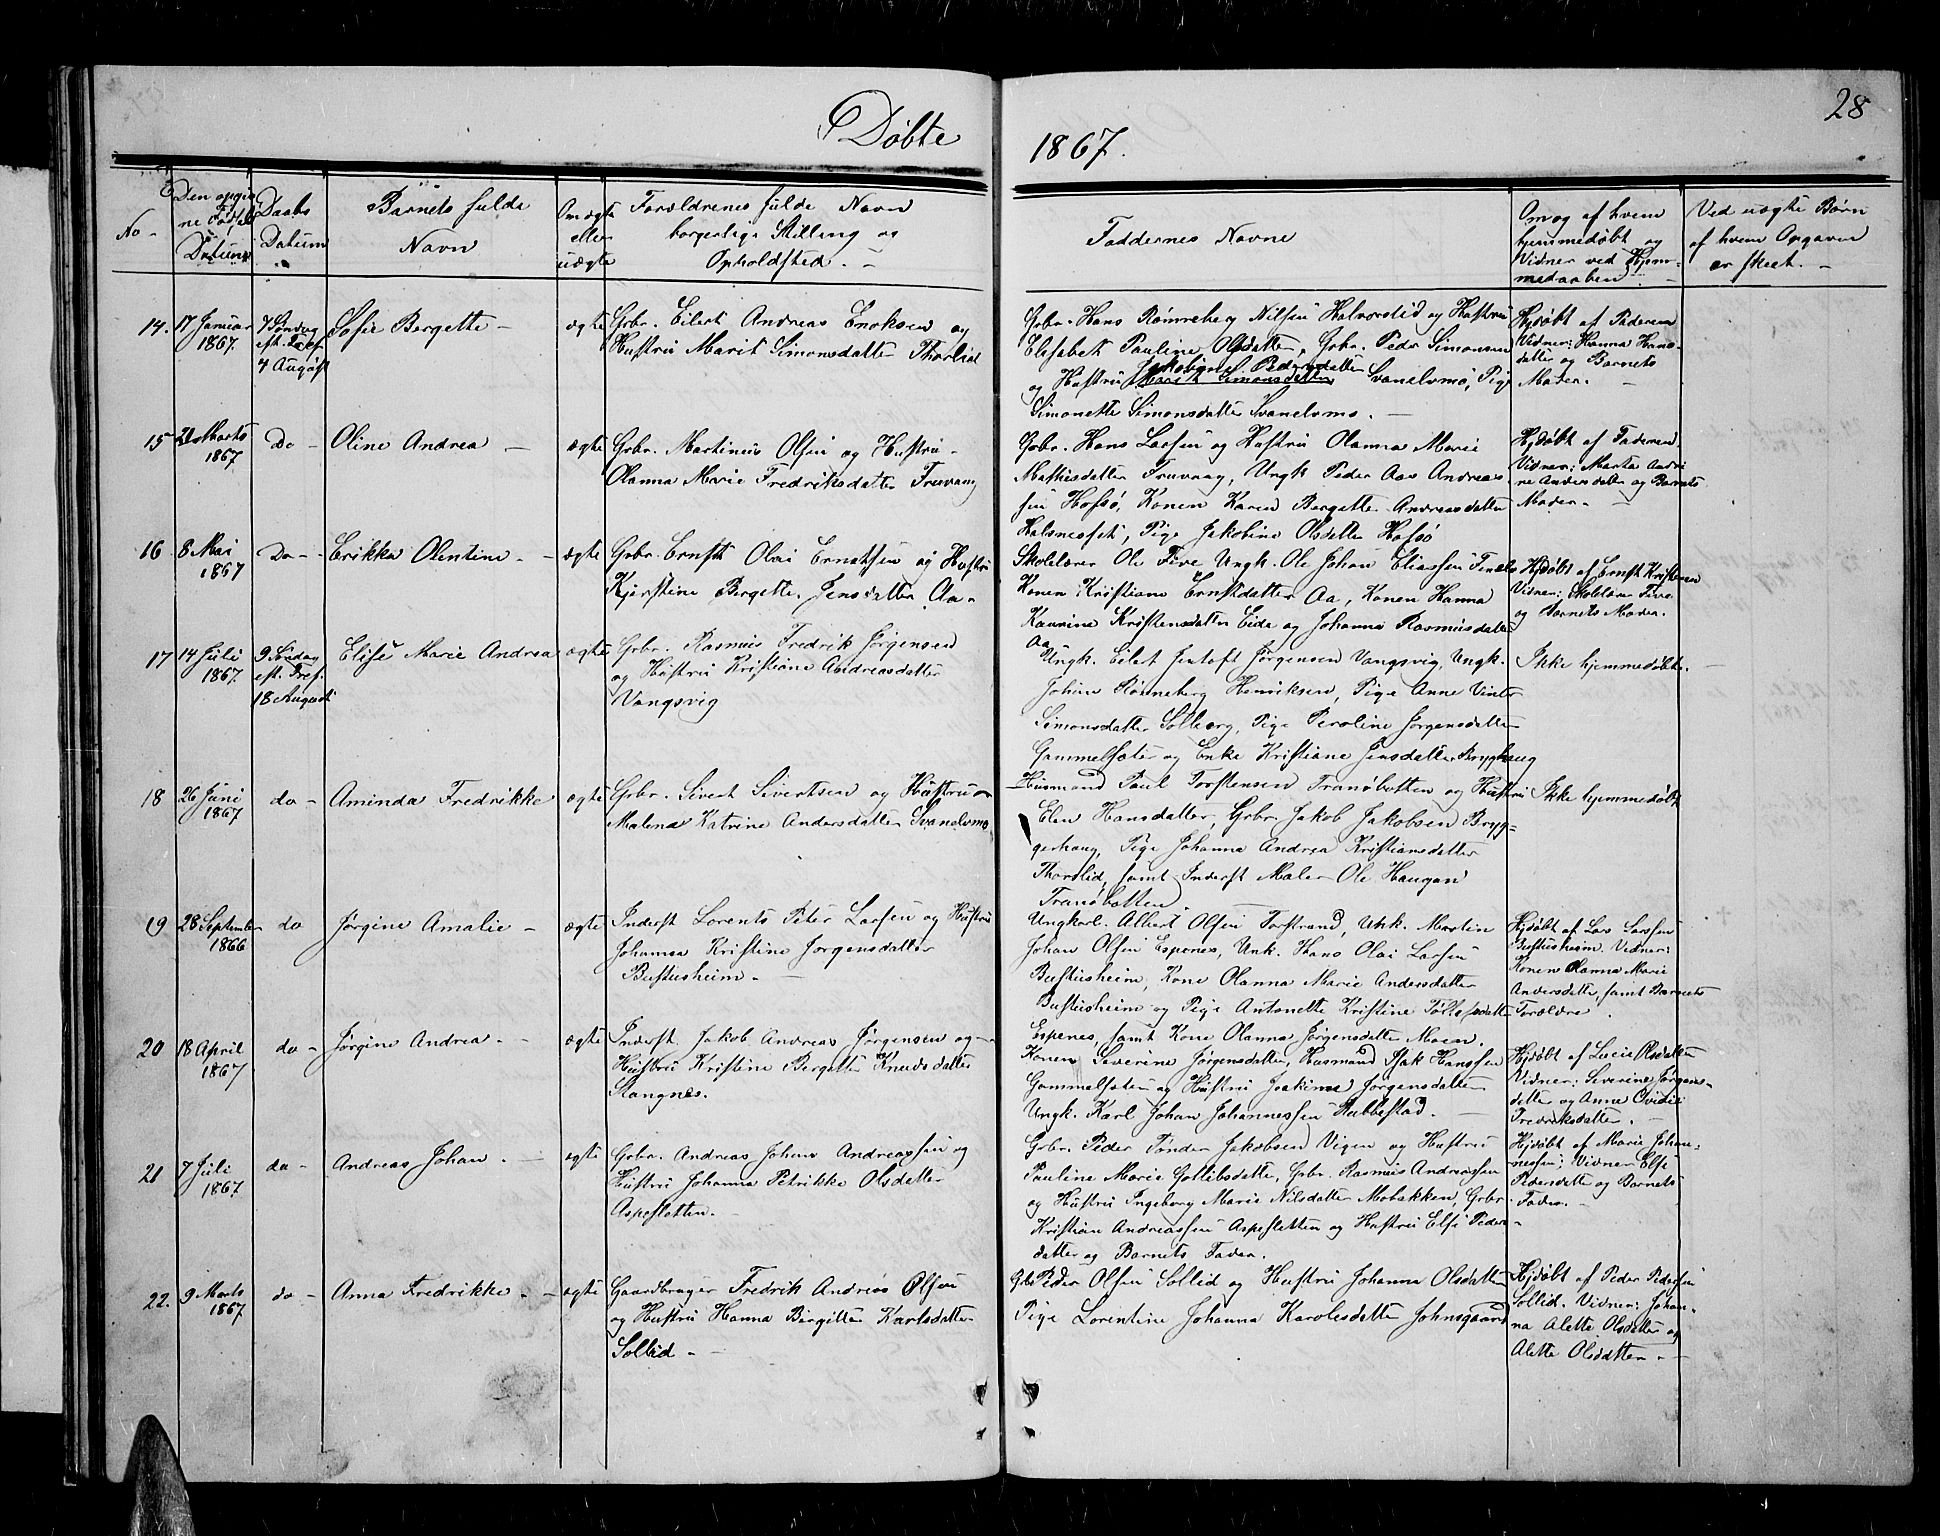 Døbte 1867. 28
No
Den opgivne Fødsels Datum
Daabs Datum
Barnets fulde Navn
Om ægte eller uægte
Forældrenes fulde Navn borgerlige Stilling og Opholdsted.
Faddernes Navne
Om og af hvem hjemmedøbt og Vidner ved Hjemmedaaben.
Ved uægte Børn af hvem Opgaven er skeet.
14. 17 Januar 1867. 7 Søndag eft. Tref. 4 August
Sofie Bergette ægte
Grbr. Eilert Andreas Enoksen og
Hustru Marit Simonsdatter Thorlid
Grbr. Hans Rønneberg Nilsen Halvorslid og Hustru
Elisabet Pauline Olsdatter, Grbr. Peder Simonsen
og Hustru Jakobine Pedersdatter Svanelvmo, Pige
Simonette Simonsdatter Svanelvmo.
Hjdøbt af Faderen
Vidner: Hanna Hans-
datter og Barnets
Moder.
15 21 Marts 1867 Do
Oline Andrea ægte
Grbr. Martinus Olsen og Hustru
Olanna Marie Fredriksdatter Fruvang
Grbr. Hans Larsen og Hustru Olanna Marie
Mathisdatter Fruvaag, Ungk Peder Aas Andreas
sen Hofsø, Konen Karen Bergette Andreasdatter
Halsnesset, Pige Jakobine Olsdatter Hofsø
Hjdøbt af Faderen
Vidner: Marta Andri
ne Andersdatter og Barnets
Moder.
16 8 Mai 1867 Do
Erikka Olentine ægte
Grbr. Ernst Olai Ernstsen og Hustru
Kjerstine Bergette Jensdatter Aa
Skolelærer Ole Five Ungk. Ole Johan Eliassen
Konen Kristiane Ernstdatter Aa, Konen Hanna
Kaurine Kristensdatter Eide og Johanna Rasmusdatter
Aa
Hjdøbt af Ernst Kristensen
Vidner: Skolelærer Five
og Barnets Moder.
17 14 Juli 1867. 9 Søndag eft. Tref. 18 August
Elise Marie Andrea ægte
Grbr. Rasmus Fredrik Jørgensen
og Hustru Kristiane Andreasdatter
Vangsvig
Ungk. Eilert Jentoft Jørgensen Vangsvig, Ungk.
Johan Rønneberg Henriksen, Pige Anne Vinter
Simonsdatter Solberg, Pige Peroline Jørgensdatter
Gammelsæter og Enke Kristiane Jensdatter Brygghaug
Ikke hjemmedøbt.
18 26 Juni 1867 do
Aminda Fredrikke ægte
Grbr. Sivert Sivertsen og Hustru
Malena Katrine Andersdatter Svanelvmo
Husmand Paul Torstensen Tranøbotten og Hustru
Elen Hansdatter, Grbr. Jakob Jakobsen Bryg-
gerhaug, Pige Johanna Andrea Kristiansdatter
Thorlid, samt Inderst Maler Ole Haugan
Tranøbotten.
Ikke hjemmedøbt
19 28 September 1866 do
Jørgine Amalie ægte
Inderst Lorents Peter Larsen og Hustru
Johanna Kristine Jørgensdatter
Bustusheim
Ungkarl. Albert Olsen Torstrand, Unk. Martin
Johan Olsen Espenes, Unk. Hans Olai Larsen
Bustusheim, Kone Olanna Marie Andersdatter
Bustusheim og Pige Antonette Kristine Tollefsdatter
Espenes, samt Kone Olanna Jørgensdatter Moen.
Hjdøbt af Lars Larsen
Bustusheim. Vidner:
Konen Olanna Marie
Andersdatter, samt Barnets
Forældre.
20 18 April 1867 do
Jørgine Andrea ægte
Inderst Jakob Andreas Jørgensen og
Hustru Kristine Bergette Knudsdatter
Stangnes.
Konen Severine Jørgensdatter, Husmand Isak Hanssen
Gammelsæter og Hustru Joakime Jørgensdatter
Ungk. Karl Johan Johannessen Rubbestad.
Hjdøbt af Lucie Olsdatter
Vidner: Severine Jørgens-
datter og Anne Ovidie
Fredriksdatter.
21 7 Juli 1867 do
Andreas Johan ægte
Grbr. Andreas Johan Andreassen og
Hustru Johanna Petrikke Olsdatter
Aspesletten.
Grbr. Peder Tønder Jakobsen Vigen og Hustru
Pauline Marie Gottlibsdatter, Grbr. Rasmus Andreassen
og Hustru Ingeborg Marie Nilsdatter Mobakken, Grbr.
Kristian Andreassen Aspesletten og Hustru Elsi Peder-
datter og Barnets Fader.
Hjdøbt af Marie Johan-
nessen; Vidner Elsi
Pedersdatter og Barnets
Fader.
22. 9 Marts 1867 do
Anna Fredrikke ægte
Gaardbruger Fredrik Andreas Olsen
og Hustru Hanna Birgitte Karlsdatter
Sollid
Grbr Peder Olsen Sollid og Hustru Johanna Olsdatter
Pige Lorentine Johanna Karolesdatter Johnsgaard
Hjdøbt af Peder Pedersen
Sollid. Vidner: Johan-
na Alette Olsdatter og
Alette Olsdatter.